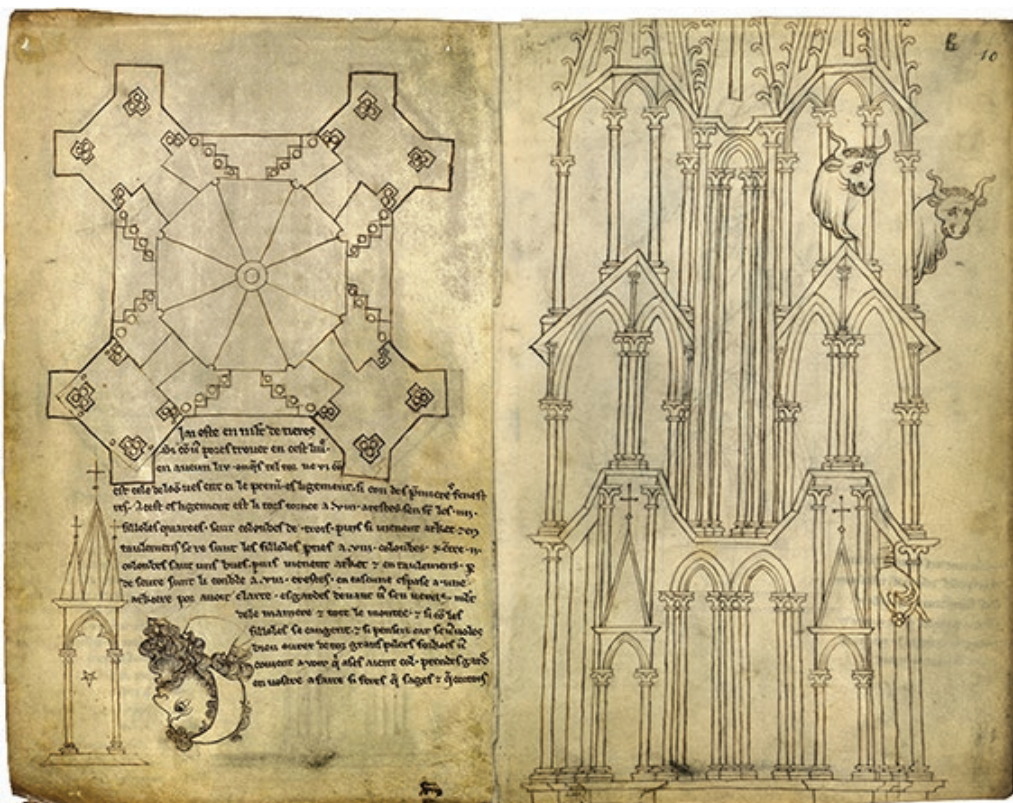 Jai este en mlt de tieres
si cō vˢ pores trover en cest liv̄.
en aucun liu onqˢ tel tor ne vi cō
est cele de loō. ves ent ci le premī esligement. si con des pmieres fenest
res. A cest esligement est li tors tornee a .viii. arestes. sen st̄ les .iiii.
filloles quarees. seur colonbes de trois. puis si vienent arket ⁊ en
taulemens. se re sunt les filloles pties a .viii. colonbes. ⁊ ētre .ii.
colonbes saut uns bues. puis vienent arket ⁊ entaulemens. p
de seure sunt li conble a .viii. crestes. en cascune espase a une
arkiere por avoir clarte. esgardes devant vˢ sen veres. mlt
dele maniere ⁊ tote le montee. ⁊ si cō les
filloles se cangent. ⁊ si penses car se vˢ voles
bien ovrer de toz grans pilers forkies vˢ
covient avoir q ases aient col. prendes gard
en vostre afaire si feres q sages ⁊ q cortois
10